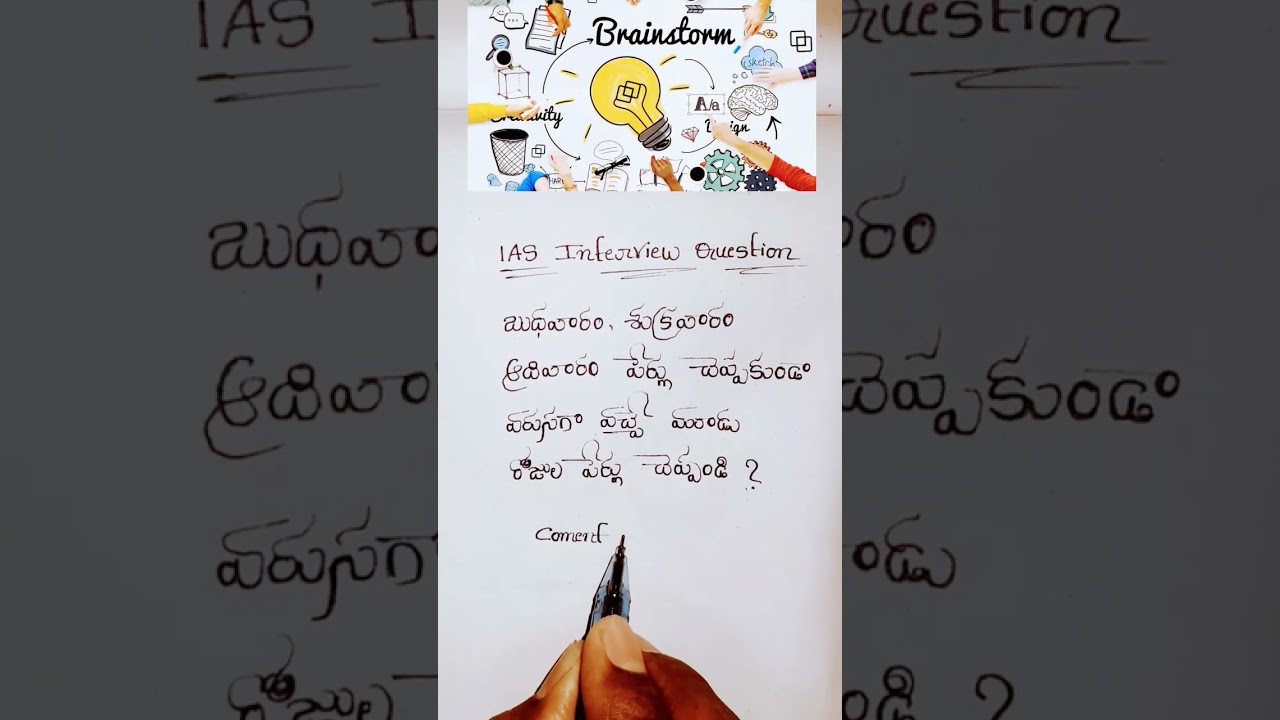 Brainstorm
sketch
A/a
IAS Interview Question
బుధవారం, శుక్రవారం
ఆదివారం పేర్లు చెప్పకుండా
వరుసగా వచ్చే మూడు
రోజుల పేర్లు చెప్పండి ?
Coment